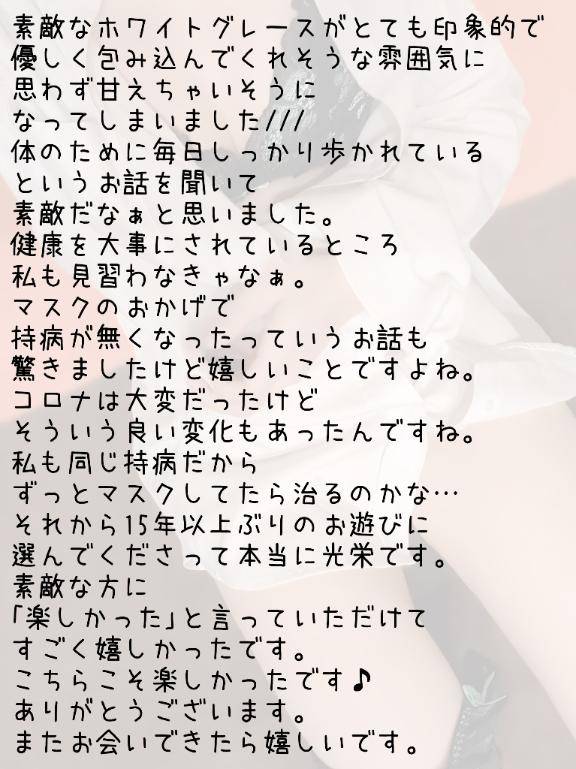 素敵なホワイトグレースがとても印象的で
優しく包み込んでくれそうな雰囲気に
思わず甘えちゃいそうに
なってしまいました///
体のために毎日しっかり歩かれている
というお話を聞いて
素敵だなぁと思いました。
健康を大事にされているところ
私も見習わなきゃなぁ。
マスクのおかげで
持病が無くなったっていうお話も
驚きましたけど嬉しいことですよね。
コロナは大変だったけど
そういう良い変化もあったんですね。
私も同じ持病だから
ずっとマスクしてたら治るのかな…
それから15年以上ぶりのお遊びに
選んでくださって本当に光栄です。
素敵な方に
｢楽しかった｣と言っていただけて
すごく嬉しかったです。
こちらこそ楽しかったです♪
ありがとうございます。
またお会いできたら嬉しいです。